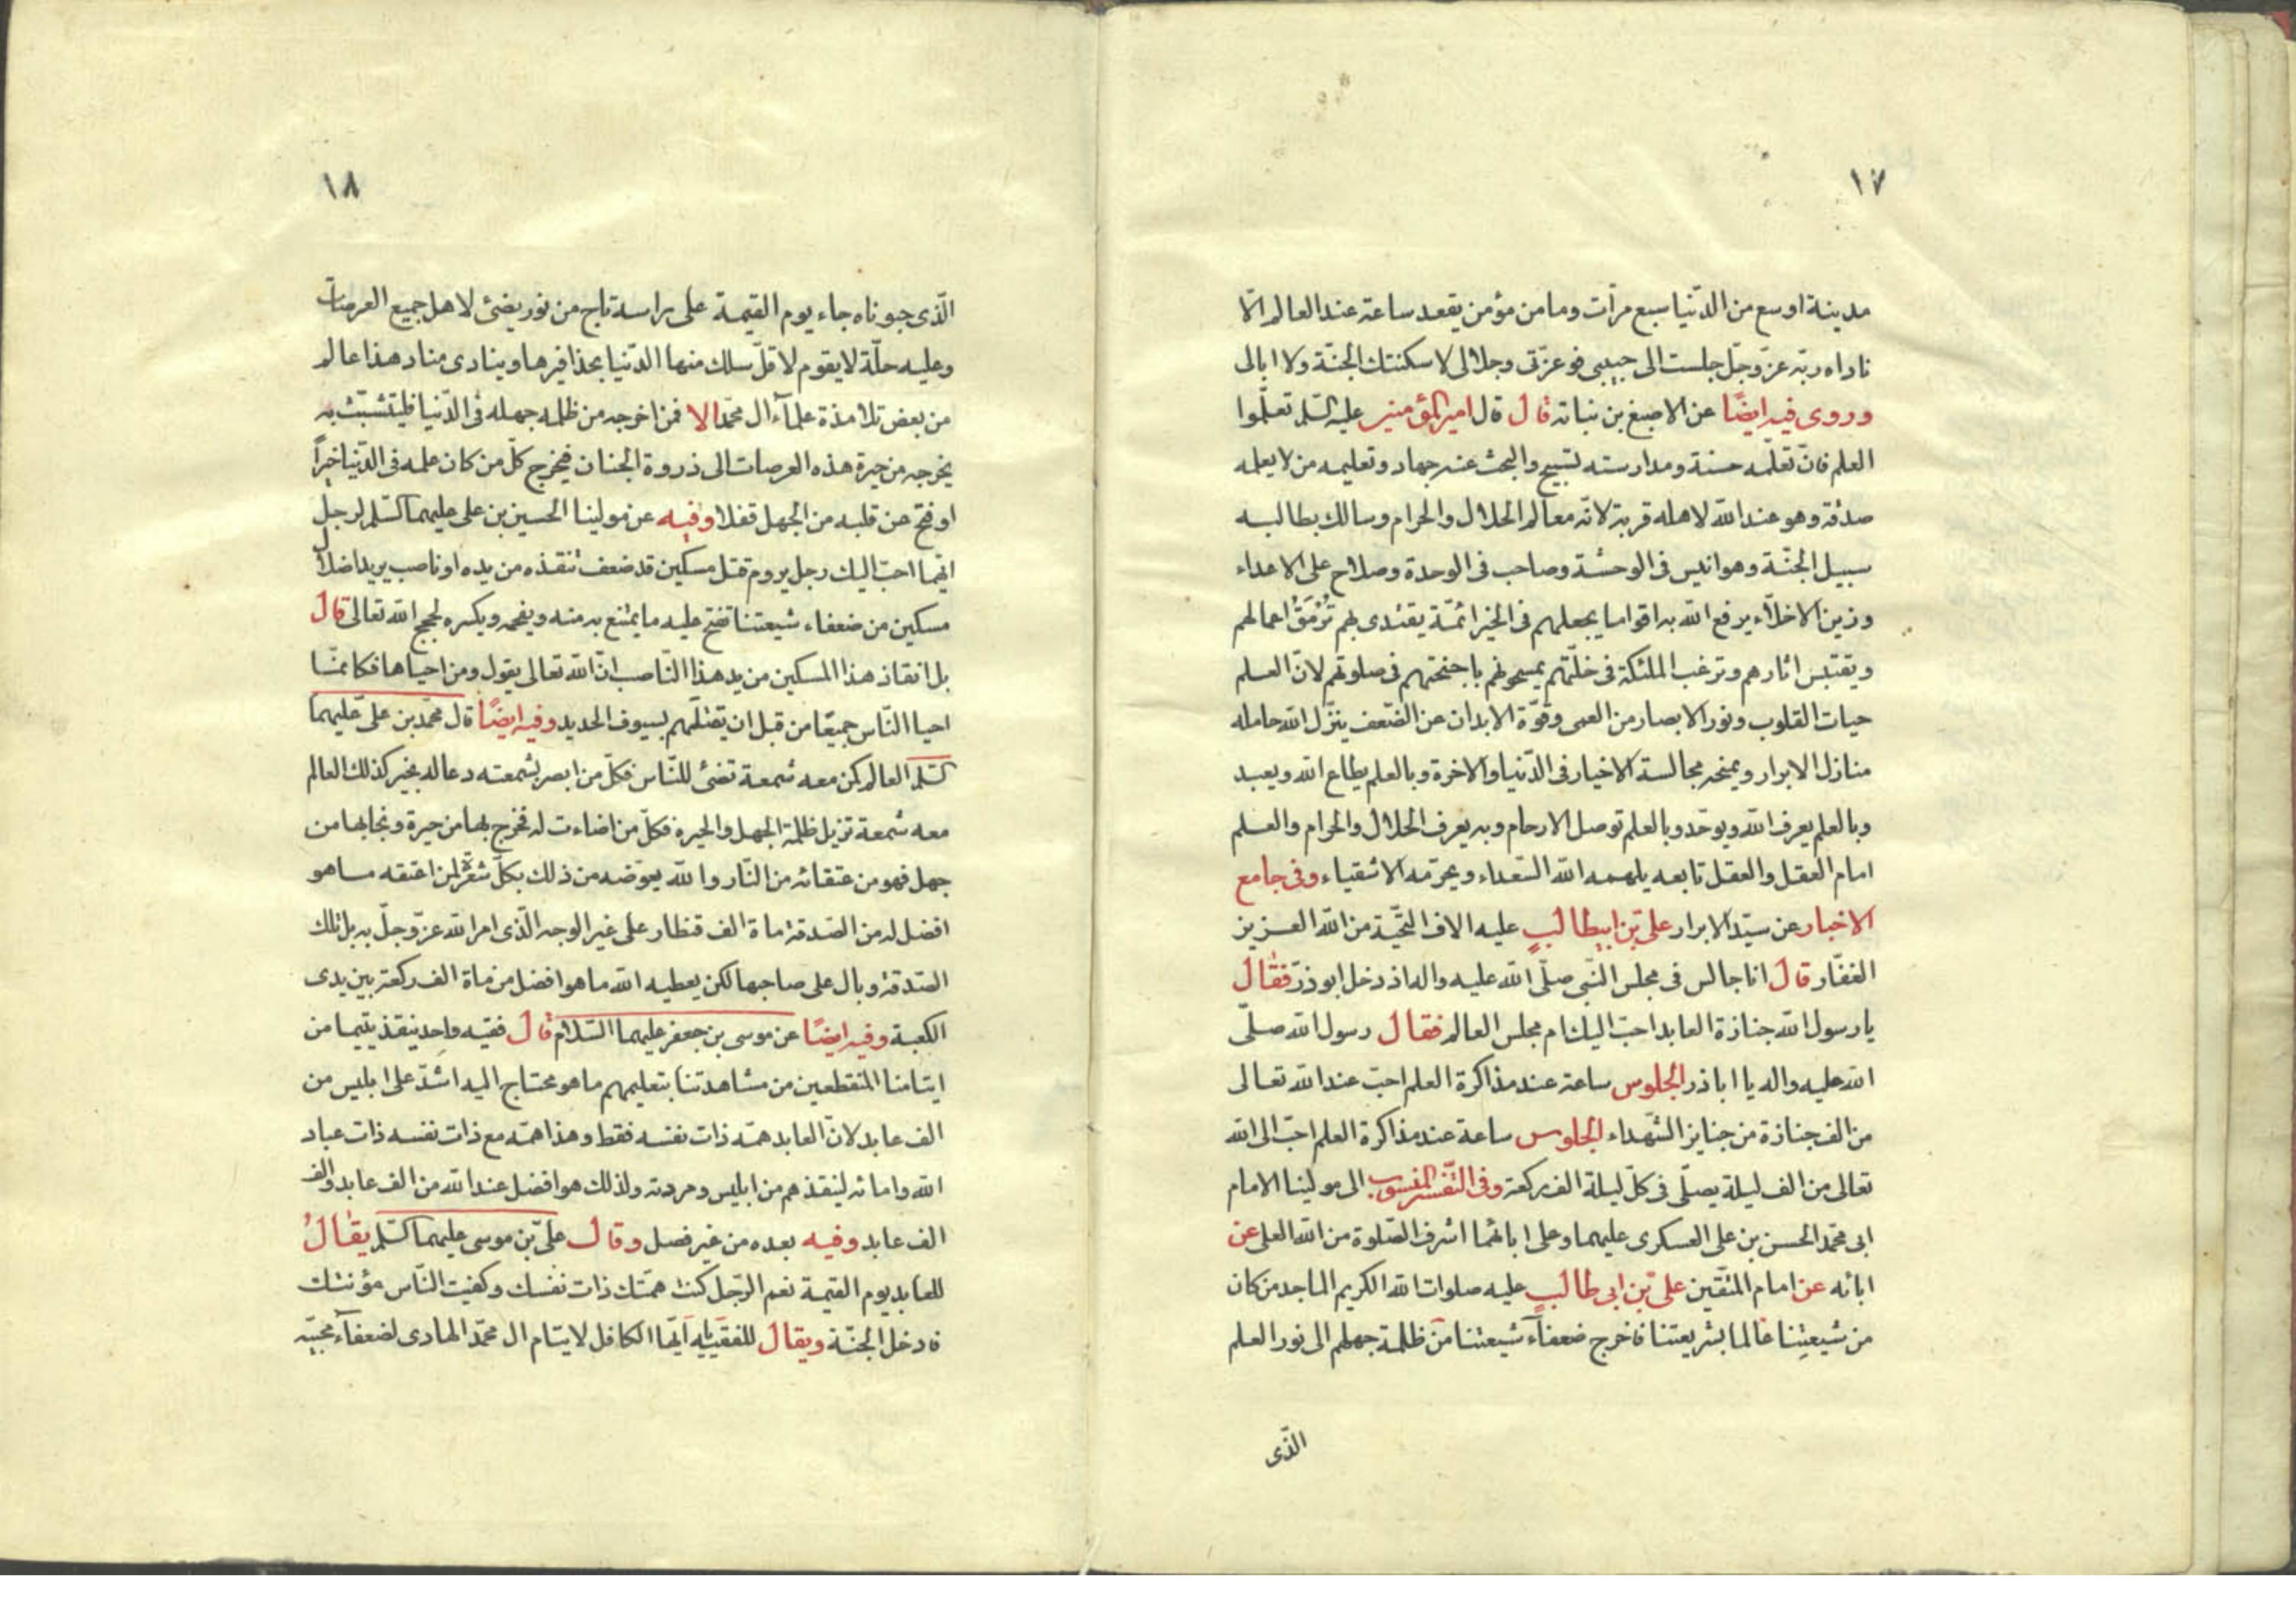 ١٧
مدينة اوسع من الدّنيا سبع مرّات وما من مؤمن يقعد ساعة عند العالم الّا
ناداه ربّه عزّ وجلّ جلست الى حبيبى فوعزّتى وجلالى لاسكننك الجنّة ولا ابالى
وروى فيه ايضًا عن الاصبغ بن نباته قال قال امير المؤمنين عليه السّلم تعلّموا
العلم فانّ تعلّمه حسنة ومدارسته تسبيح والبحث عنه جهاد وتعليمه من لا يعلمه
صدقة وهو عند الله لاهله قربة لانّه معالم الحلال والحرام وسالك بطالبه
سبيل الجنّة وهو انيس فى الوحشة وصاحب فى الوحدة وصلاح على الاعداء
وزين الاخلّاء يرفع الله به اقواما يجعلهم فى الخير ائمّة يقتدى بهم تُرْمَقُ اعمالهم
ويقتبس اثارهم وترغب الملئكة فى خلّتهم يمسحونهم باجنحتهم فى صلوتهم لانّ العلم
حيات القلوب ونور الابصار من العمى وقوّة الابدان عن الضّعف ينزّل الله حامله
منازل الابرار ويمنحه مجالسة الاخيار فى الدّنيا والاخرة وبالعلم يطاع الله ويعبد
وبالعلم يعرف الله ويوحّد وبالعلم توصل الارحام وبه يعرف الحلال والحرام والعلم
امام العقل والعقل تابعه يلهمه الله السّعداء ويحرّمه الاشقياء وفى جامع
الاخبار عن سيّد الابرار علىّ بن ابيطالبٍ عليه الاف التّحيّة من الله العزيز
الغفّار قال انا جالس فى مجلس النّبى صلّى الله عليه واله اذ دخل ابوذرّ فقال
يا رسول الله جنازة العابد احبّ اليك ام مجلس العالم فقال رسول الله صلّى
الله عليه واله يا اباذر الجلوس ساعة عند مذاكرة العلم احبّ عند الله تعالى
من الف جنازة من جنايز الشّهداء الجلوس ساعة عند مذاكرة العلم احبّ الى الله
تعالى من الف ليلة يصلّى فى كلّ ليلة الف ركعة وفى التّفسير المنسوب الى مولينا الامام
ابى محمّد الحسن بن على العسكرى عليهما وعلى ابائهما اشرف الصّلوة من الله العلى عن
ابائه عن امام المتّقين علىّ بن ابى طالبٍ عليه صلوات الله الكريم الماجد من كان
من شيعتِنا عالما بشريعتنا فاخرج ضعفآء شيعتنا من ظلمة جهلهم الى نور العلم
الّذى
١٨
الّذى حبوناه جاء يوم القيمة على راسه تاج من نور يضئ لاهل جميع العرصات
وعليه حلّة لا يقوم لاقلّ سلك منها الدّنيا بحذافيرها وينادى مناد هذا عالم
من بعض تلامذة علمآء ال محمّد الا فمن اخرجه من ظلمه جهله فى الدّنيا فليتشبّث به
يخرجه من حيرة هذه العرصات الى ذروة الجنان فيخرج كلّ من كان علمه فى الدّنيا خيرًا
او فتح عن قلبه من الجهل قفلا وفيه عن مولينا الحسين بن على عليهما السّلم لرجل
ايّهما احبّ اليك رجل يروم قتل مسكين قد ضعف تنقذه من يده او ناصب يريد اضلال
مسكين من ضعفاء شيعتنا تفتح عليه ما يمتنع به منه ويفحمه ويكسره لحجج الله تعالى قال
بل انقاذ هذا المسكين من يد هذا النّاصب انّ الله تعالى يقول ومن احياها فكانمّا
احيا النّاس جميعًا من قبل ان يقتلهم بسيوف الحديد وفيه ايضًا قال محمّد بن علىّ عليهما
السّلم العالم كمن معه شمعة تضئ للنّاس فكلّ من ابصر بشمعته دعا له بخير كذلك العالم
معه شمعة تزيل ظلمة الجهل والحيره فكلّ من اضاءت له فخرج بها من حيرة ونجا بها من
جهل فهو من عتقائه من النّار والله يعوّضه من ذلك بكلّ شعرة لمن اعتقه ما هو
افضل له من الصّدقة ماة الف قنطار على غير الوجه الّذى امر الله عزّ وجلّ به بل تلك
الصّدقة وبال على صاحبها لكن يعطيه الله ما هو افضل من ماة الف ركعة بين يدى
الكعبة وفيه ايضًا عن موسى بن جعفر عليهما السّلام قال فقيه واحد ينقذ يتيما من
ايتامنا المنقطعين من مشاهدتنا بتعليمهم ما هو محتاج اليه اشدّ على ابليس من
الف عابد لانّ العابد همّه ذات نفسه فقط وهذا همّه مع ذات نفسه ذات عباد
الله وامائه لينقذهم من ابليس ومردته ولذلك هو افضل عند الله من الف عابد والف
الف عابد وفيه بعده من غير فصل وقال علىّ بن موسى عليهما السّلم يقالُ
للعابد يوم القيمة نعم الرّجل كنت همّتك ذات نفسك وكفيت النّاس مؤنتك
فادخل الجنّة ويقال للفقيه يا ايّها الكافل لايتام ال محمّد الهادى لضعفآء محبّيه